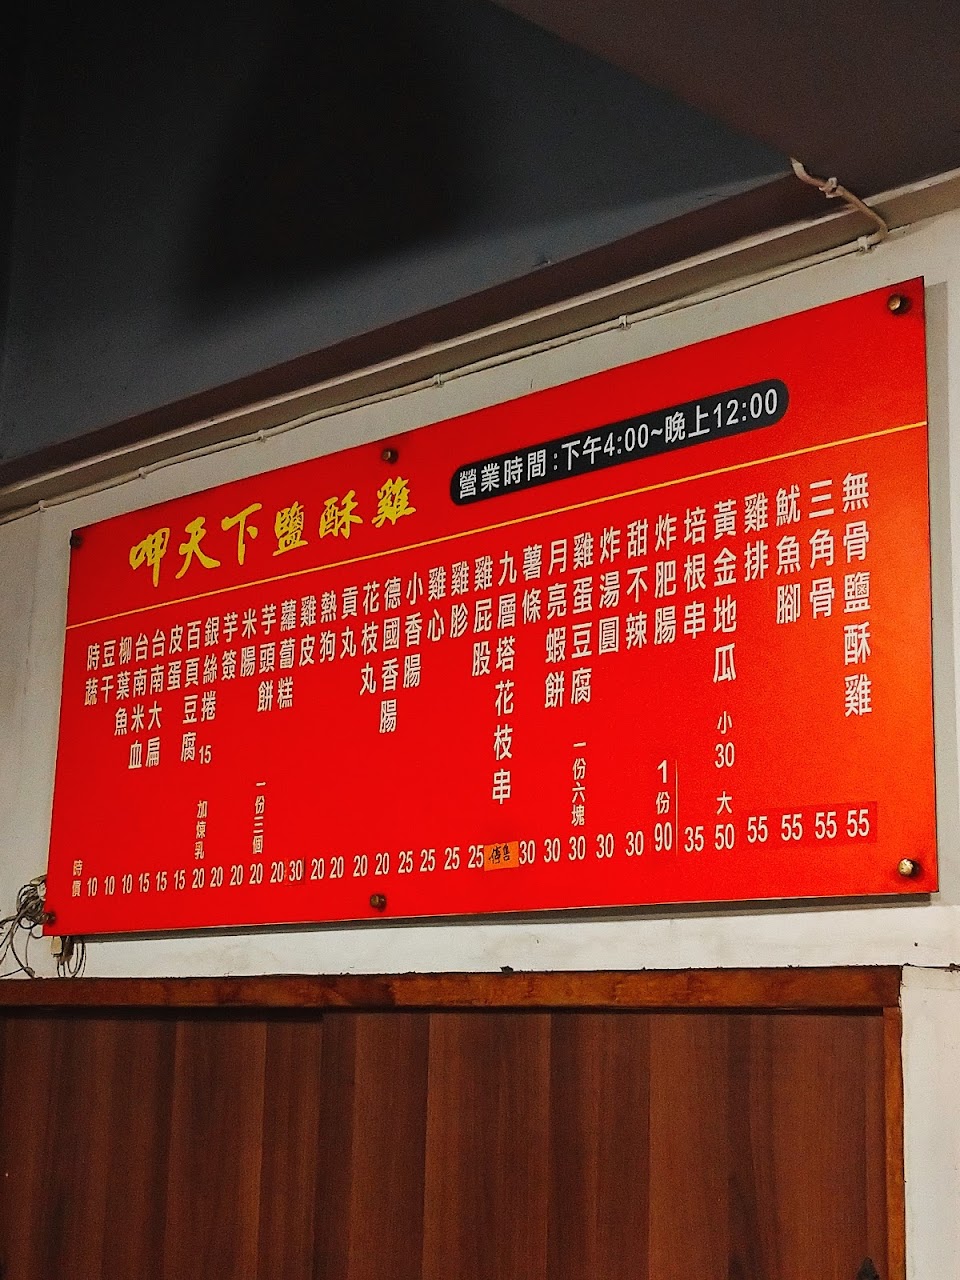 呷天下鹽酥雞
營業時間:下午4:00~晚上12:00
無骨鹽酥雞 55
三角骨 55
魷魚腳 55
雞排 55
黃金地瓜 小30 大50
培根串 35
炸肥腸 1份90
甜不辣 30
炸湯圓 30
雞蛋豆腐 一份六塊 30
月亮蝦餅 30
薯條 30
九層塔花枝串 停售
雞屁股 25
雞胗 25
雞心 25
小香腸 25
德國香腸 20
花枝丸 20
貢丸 20
熱狗 20
雞皮 30
蘿蔔糕 20
芋頭餅 一份三個 20
米腸 20
芋簽 20
銀絲捲 15 加煉乳 20
百頁豆腐 15
皮蛋 15
台南大扁 15
台南米血 10
柳葉魚 10
豆干 10
時蔬 時價